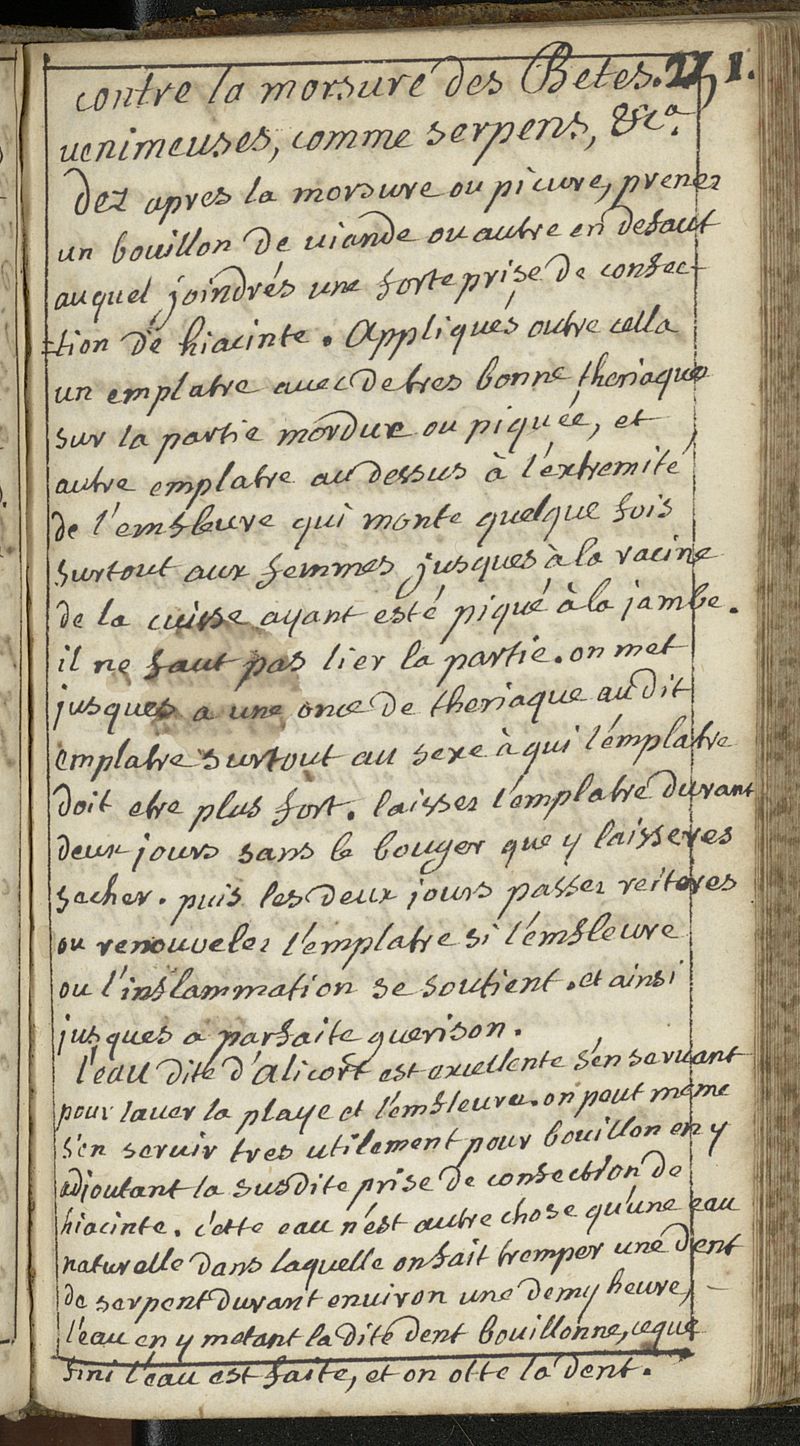 contre la morsure des Betes. 271.
venimeuses, comme serpens, &ca.
Dez apres la morsure ou picure, prenez
un bouillon de viande ou autre en defaut
auquel joindrés une forte prise de confec-
=tion de hiacinte. Appliqués outre cella
un emplatre avec de tres bonne theriaque
sur la partie mordue ou piquée, et
autre emplatre au dessus à l'extremité
de l'emfleure qui monte quelque fois
surtout aux femmes jusques à la racine
de la cuisse ayant esté piqué à la jambe.
il ne faut pas lier la partie. on met
jusques a une once de theriaque au dit
emplatre surtout au sexe à qui l'emplatre
doit etre plus fort. laissez l'emplatre durant
deux jours sans le bouger que y laisseres
secher. puis les deux jours passez reiteres
ou renouvelez l'emplatre si l'emfleure
ou l'inflammation se soutient. et ainsi
jusques a parfaite guerison.
l'eau dite d'alicort est excellente s'en servant
pour laver la playe et l'emfleure. on peut meme
s'en servir tres utilement pour bouillon en y
adjoutant la susdite prise de confection de
hiacinte. cette eau n'est autre chose qu'une eau
naturelle dans laquelle on fait tremper une dent
de serpent durant environ une demy heure, -
l'eau en y metant la dite dent bouillonne, ce que
fini l'eau est faite, et on otte la dent.